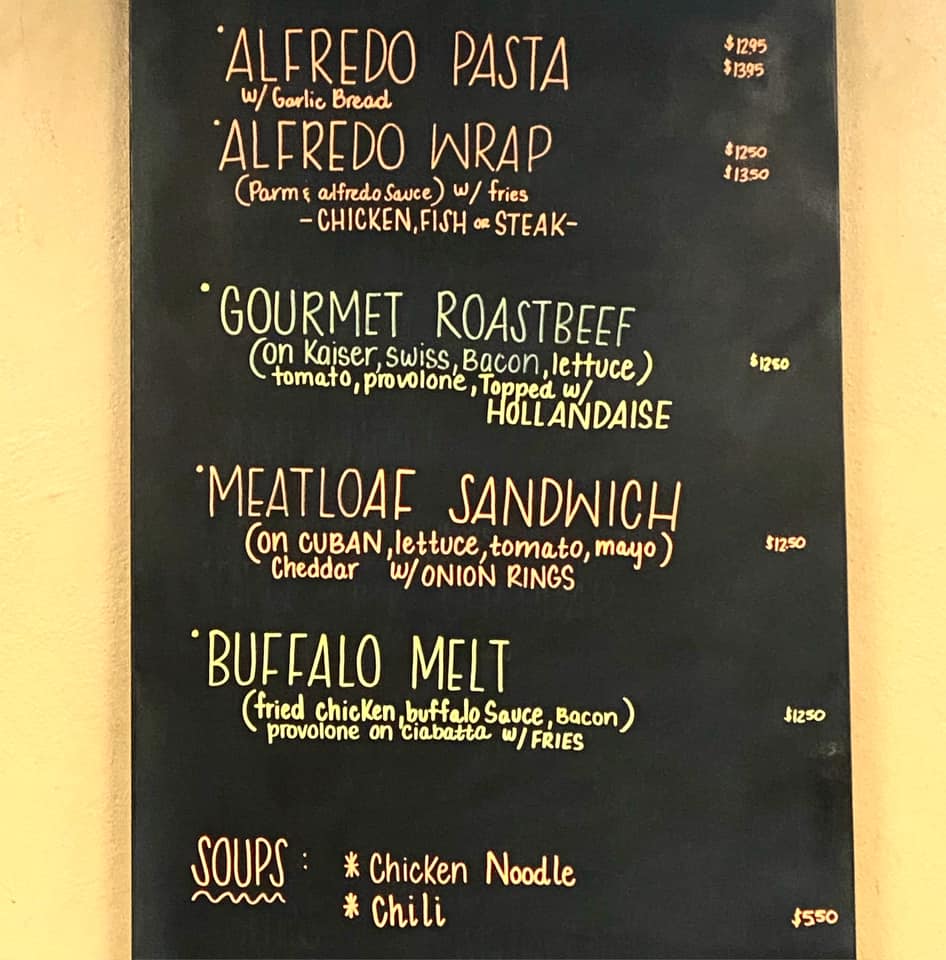 ·ALFREDO PASTA $12.95
w/ Garlic Bread $13.95
·ALFREDO WRAP $12.50
(Parm & alfredo Sauce) w/ fries $13.50
-CHICKEN, FISH OR STEAK-
·GOURMET ROASTBEEF
(on Kaiser, swiss, Bacon, lettuce) $12.50
tomato, provolone, Topped w/
HOLLANDAISE
·MEATLOAF SANDWICH
(on CUBAN, lettuce, tomato, mayo) $12.50
Cheddar w/ ONION RINGS
·BUFFALO MELT
(fried chicken, buffalo Sauce, Bacon) $12.50
provolone on ciabatta w/ FRIES
SOUPS: * Chicken Noodle
* Chili $5.50